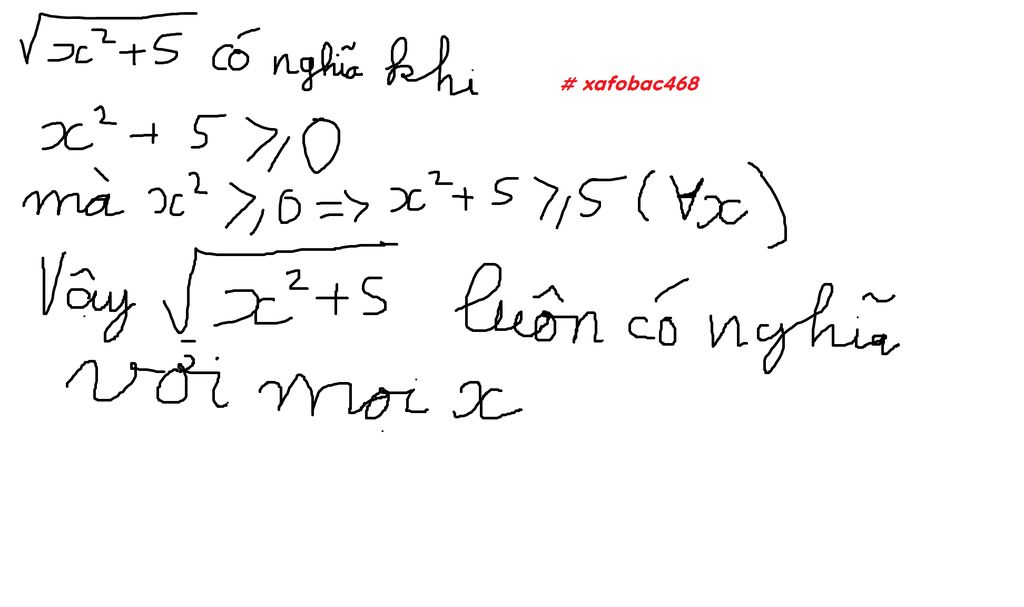 √x²+5 có nghĩa khi
# xafobac468
x² + 5 ≥ 0
mà x² ≥ 0 => x² + 5 ≥ 5 (∀x)
Vậy √x²+5 luôn có nghĩa
với mọi x